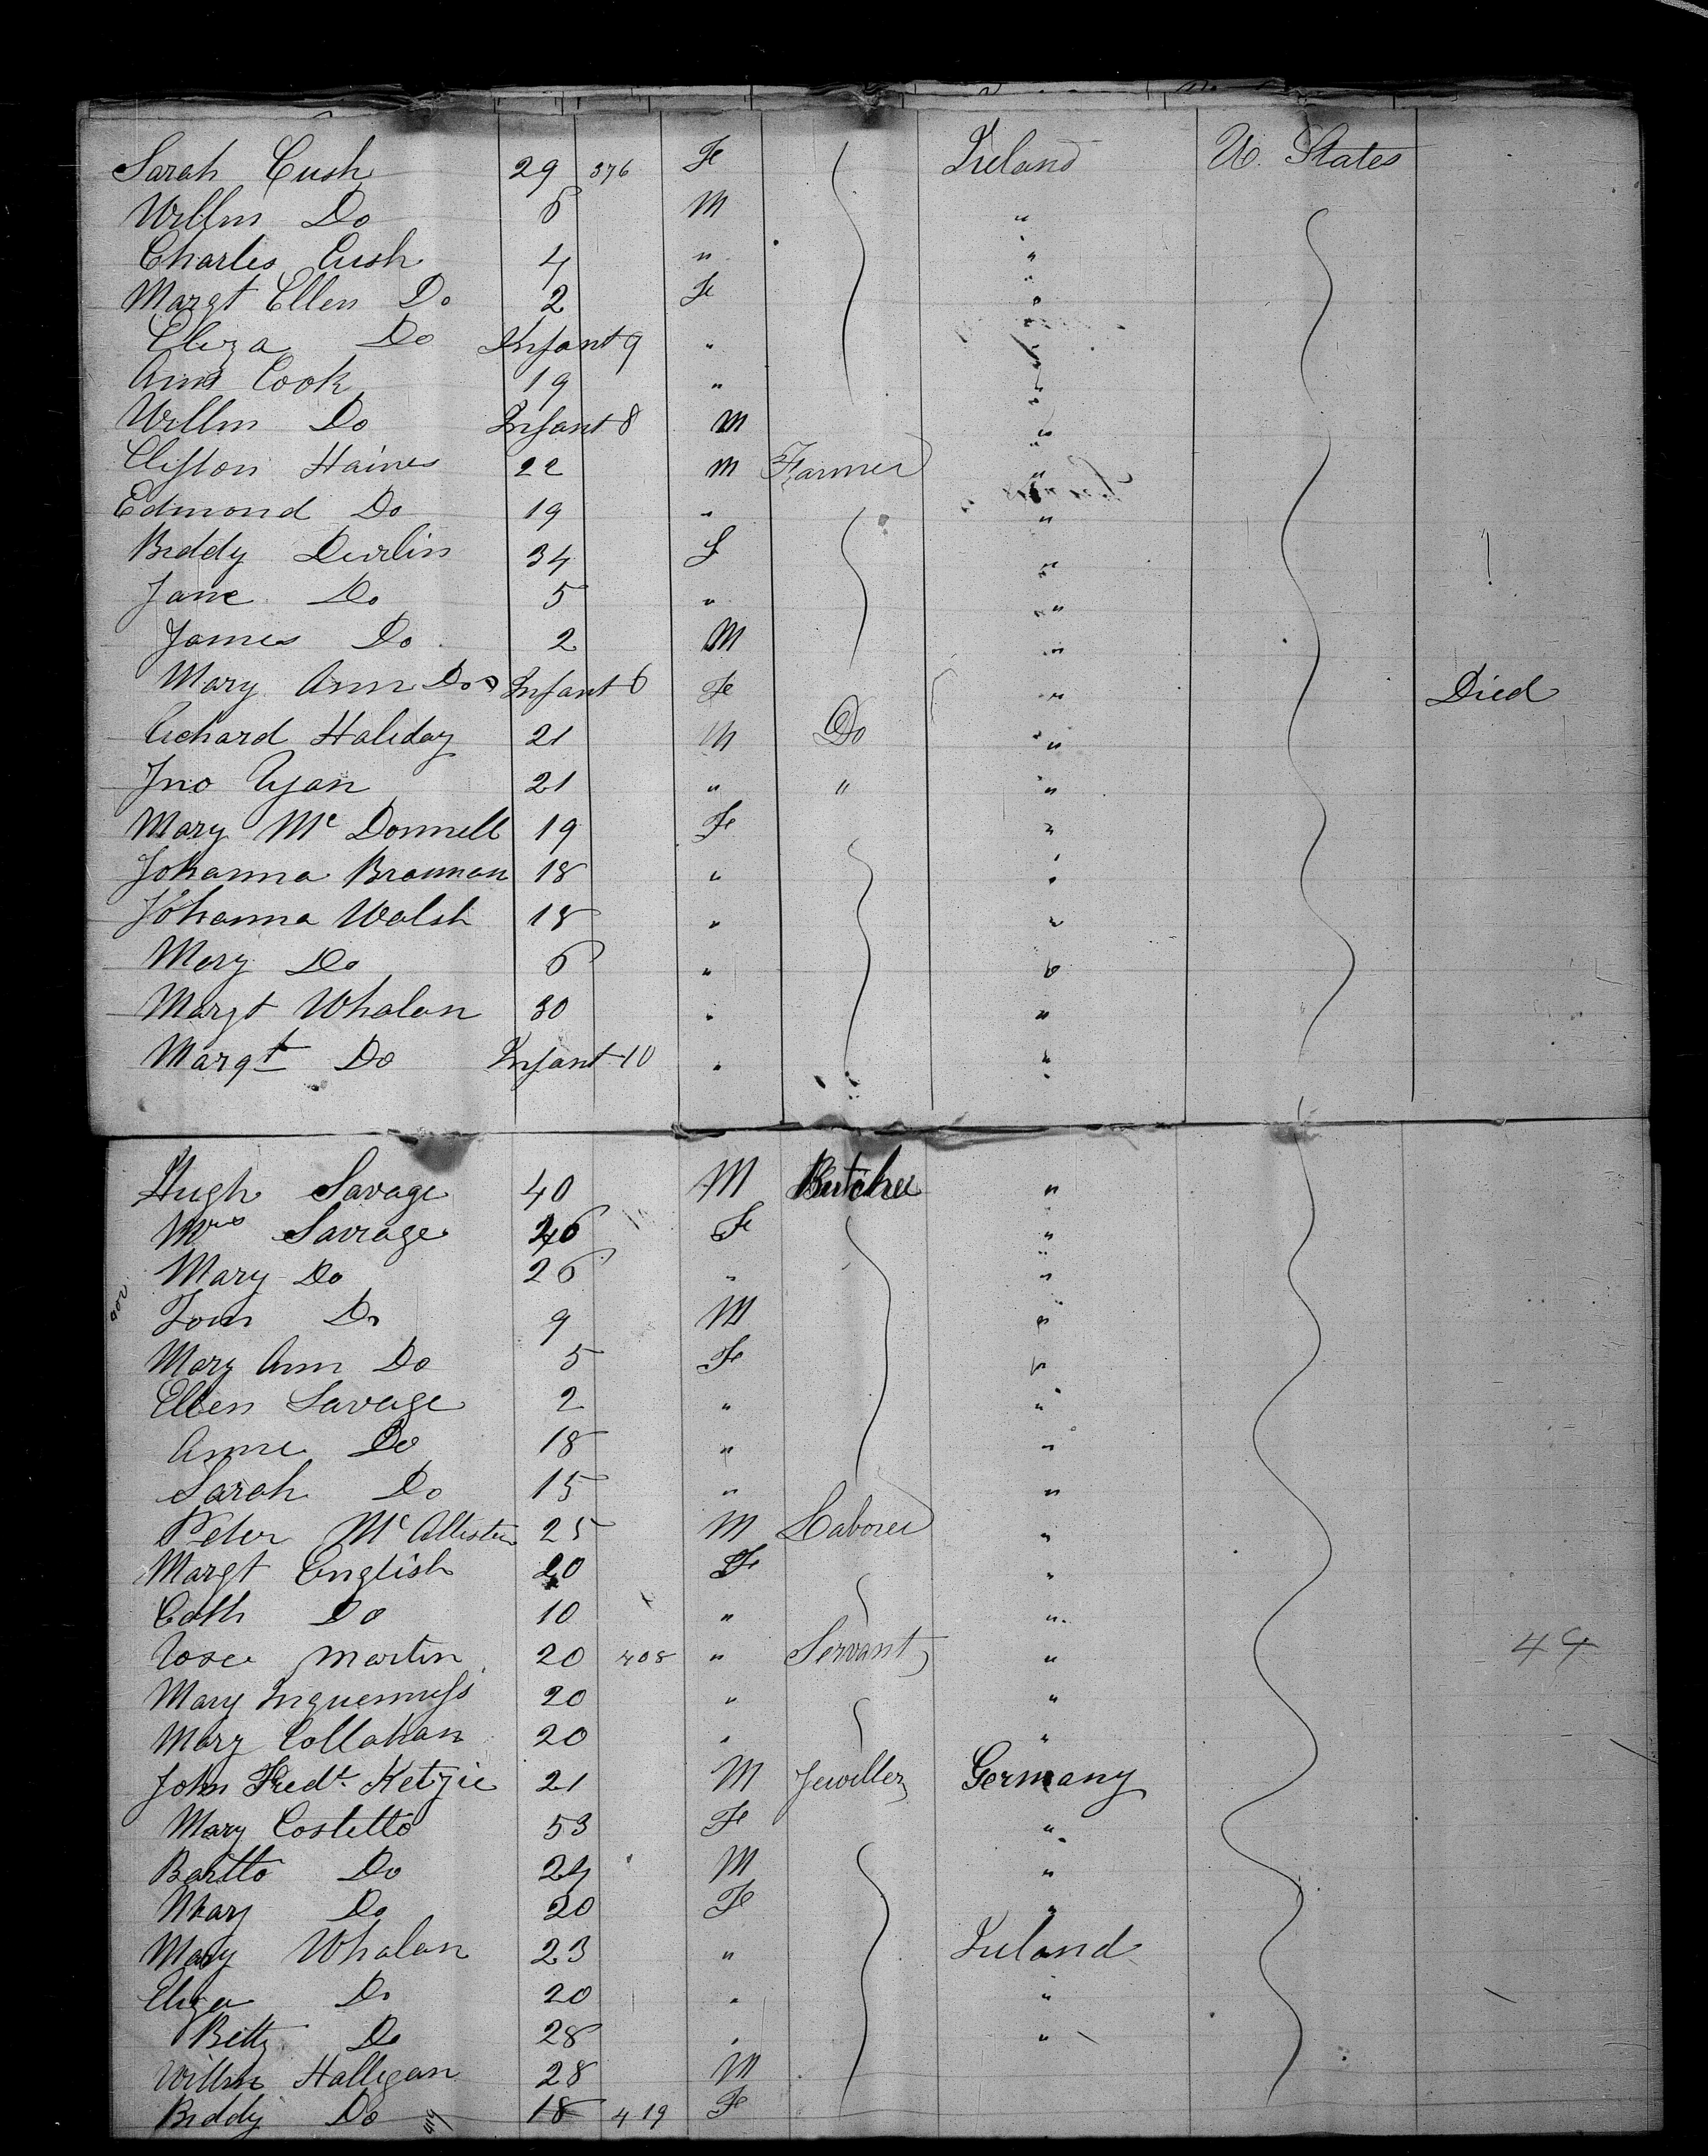 Sarah Cush 29 376 Fe Ireland U. States
Willm Do 6 M "
Charles Cush 4 " "
Margt Ellen Do 2 Fe "
Eliza Do Infant 9 " "
Ann Cook 19 " "
Willm Do Infant 8 M "
Clifton Haines 22 M Farmer "
Edmond Do 19 " "
Biddy Devlin 34 F "
Jane Do 5 " "
James Do 2 M "
Mary Ann Do Infant 6 Fe " Died
Richard Haliday 21 M Do "
Jno Ryan 21 " " "
Mary Mc Donnell 19 Fe "
Johanna Brannan 18 " "
Johanna Walsh 18 " "
Mary Do 6 " "
Margt Whalan 30 " "
Margt Do Infant 10 " "
Hugh Savage 40 M Butcher "
Mrs Savage 46 Fe "
Mary Do 26 " "
Tom Do 9 M "
Mary Ann Do 5 Fe "
Ellen Savage 2 " "
Anne Do 18 " "
Sarah Do 15 " "
Peter Mc Allister 25 M Laborer "
Margt English 20 Fe "
Cath Do 10 " "
Rose Martin 20 408 " Servant " 44
Mary 20 " "
Mary Collahan 20 " "
John Fredk Ketzie 21 M Jeweller Germany
Mary Costello 53 Fe "
Bartto Do 24 M "
Mary Do 20 Fe "
Mary Whalan 23 " Ireland
Eliza Do 20 " "
Betty Do 28 " "
Willm Halligan 28 M
Biddy Do 18 419 Fe